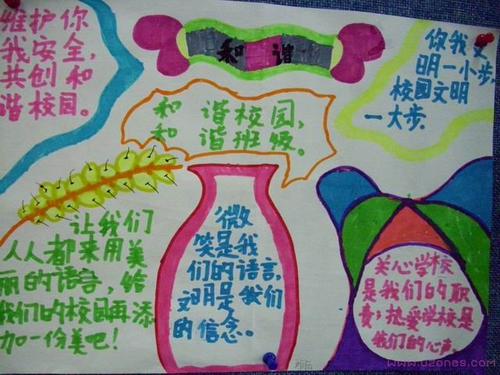 维护你
我安全,
共创和
谐校园。
和 谐
你我文
明一小步
校园文明
一大步.
和谐校园,
和谐班级。
让我们
人人都来用美
丽的语言,给
我们的校园再添
加一份美吧!
微
笑是我
们的语言,
文明是我们
的信念。
关心学校
是我们的职
责;热爱学校是
我们的心声